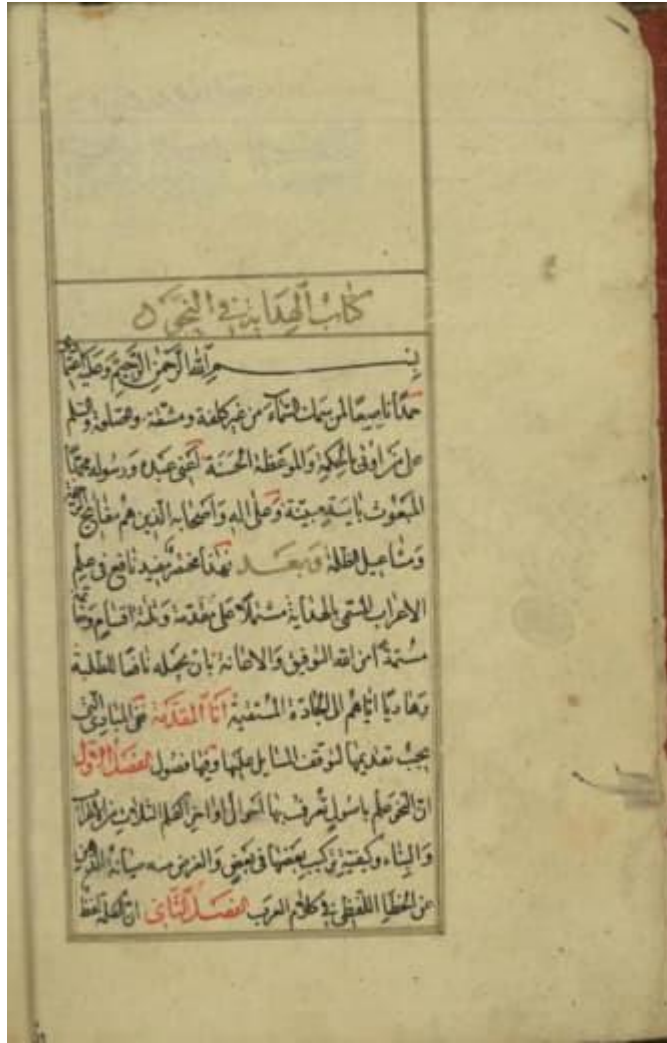 كتاب الهداية في النحو
بسم الله الرحمن الرحيم وعليه
حمدا ناصعا لمن سمك السماء من غير كلفة ومشقة وصلوة والسلم
على من اوتى بالحكمة والموعظة الحسنة اعنى عبده ورسوله محمدا
المبعوث باية مبينة وعلى اله واصحابه الذين هم مفاتيح
ومشاعيل الظلمة وبعد فهذا مختصر مفيد نافع في علم
الاعراب المسمى بالهداية مشتملا على مقدمة وثلثة اقسام
مستمدا من الله التوفيق والاعانة بان يجعله نافعا للطلبة
وهاديا اياهم الى الجادة المستقيمة اما المقدمة ففي المبادى التى
يجب تقديمها لتوقف المسايل عليها وفيها فصول الفصل الاول
ان النحو علم باصول تعرف بها احوال اواخر الكلم الثلاث من الاعراب
والبناء وكيفية تركيب بعضها في بعض والغرض منه صيانة الذهن
عن الخطاء اللفظي في كلام العرب الفصل الثانى ان الكلمة لفظ